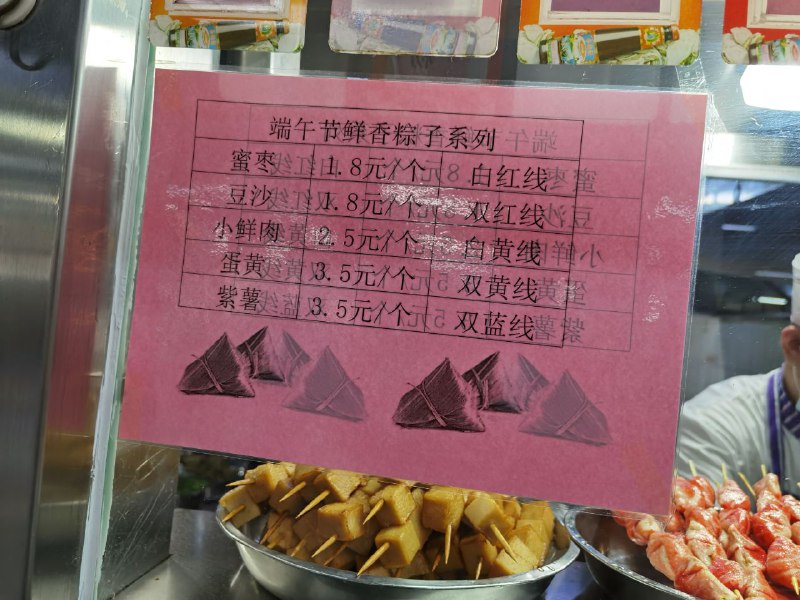 端午节鲜香粽子系列
蜜枣 1.8元/个 白红线
豆沙 1.8元/个 双红线
小鲜肉 2.5元/个 白黄线
蛋黄 3.5元/个 双黄线
紫薯 3.5元/个 双蓝线